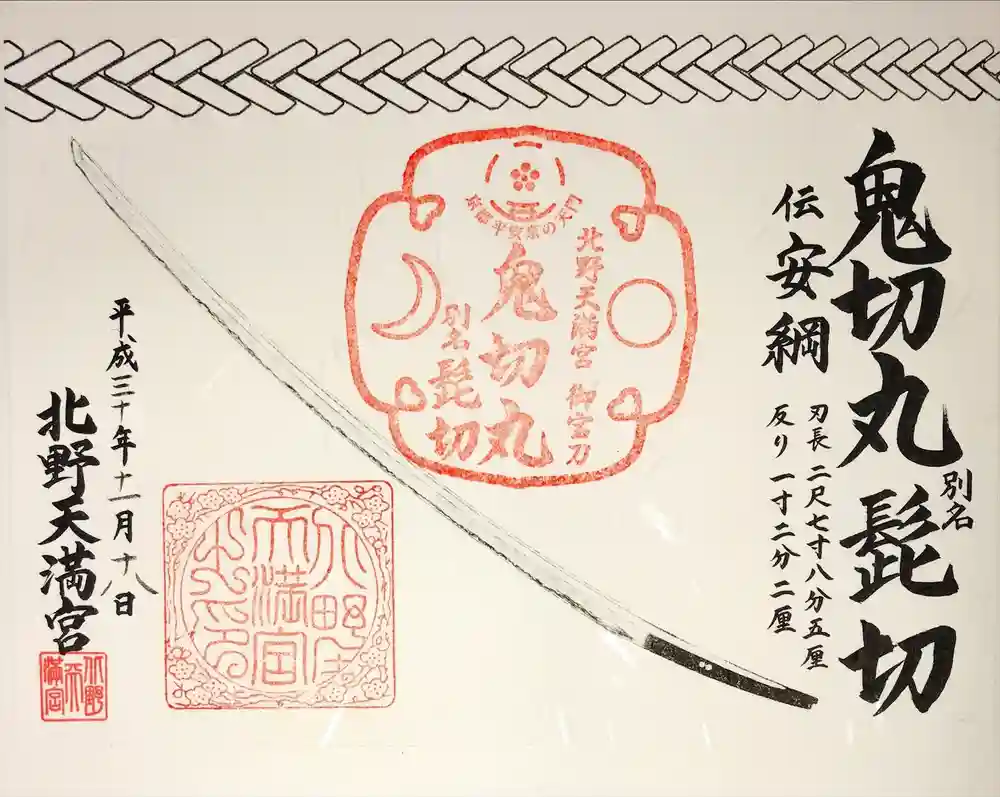 鬼切丸 別名 髭切
伝安綱
刃長 二尺七寸八分五厘
反り 一寸二分二厘
北野天満宮 御宝刀
鬼切丸
別名 髭切
平成三十年十一月十八日
北野天満宮
北野
天満宮